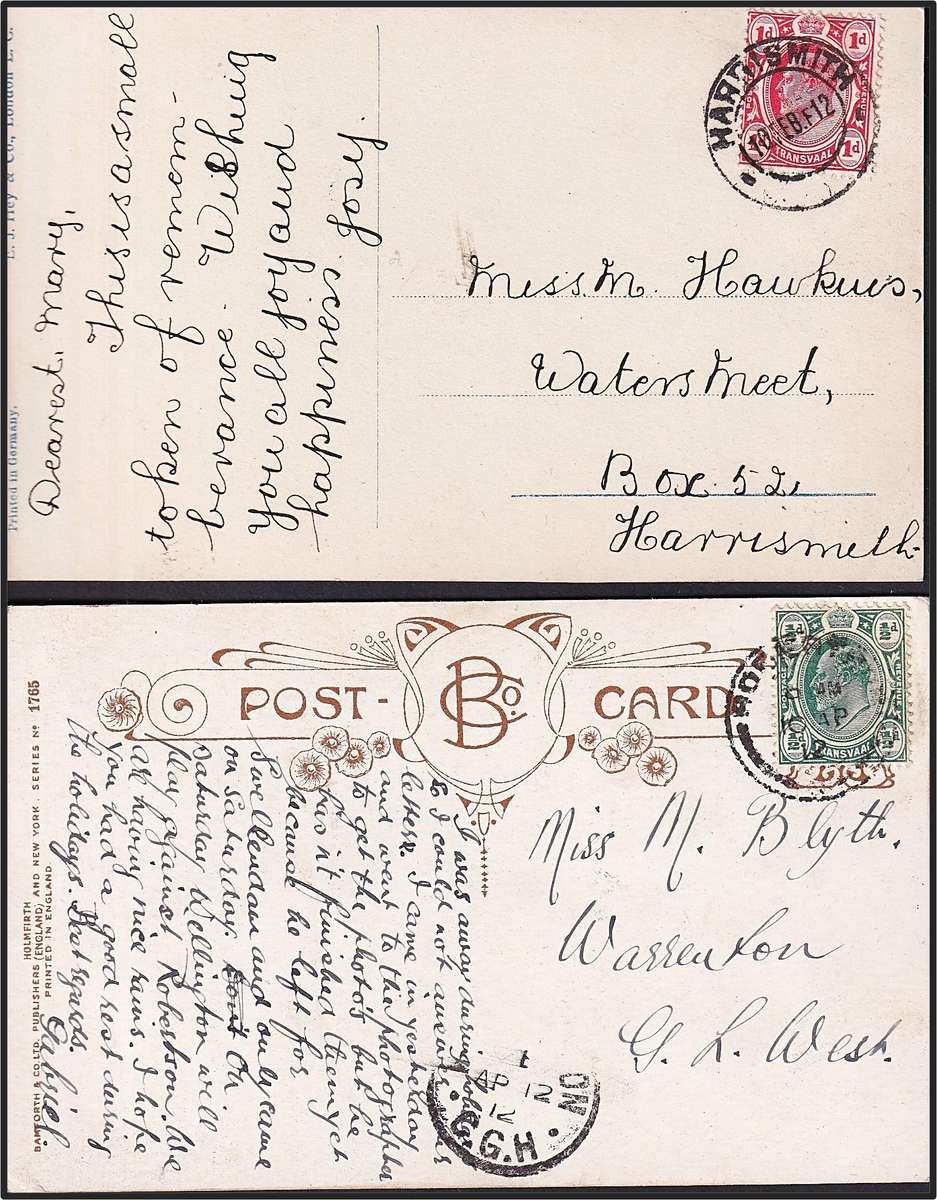 E. J. Hey & Co., London E. C.
Printed in Germany.
Dearest Mary,
This is a small
token of remem-
berance. Wishing
you all joy and
happiness. Josy.
1d 1d
TRANSVAAL
1d
HARRISMITH
Miss. M. Hawkins,
Waters Meet,
Box 52,
Harrismith
POST-CARD
B Co.
½d ½d
TRANSVAAL
AP
12
Miss M. Blyth.
Warrenton
G. L. West.
I was away during
so I could not answer
letters. I came in yesterday
and went to the photographer
to get the photo's but he
has n't finished them yet
because he left for
Swellendam and only came
on Saturday. On
Saturday Wellington will
play against Robertson. We
are having nice rains. I hope
you had a good rest during
the holidays. Best regards.
Gabriel.
AP 12
12
C.G.H.
HOLMFIRTH
BAMFORTH & CO. LTD. PUBLISHERS (ENGLAND) AND NEW YORK. SERIES Nº 1765
PRINTED IN ENGLAND